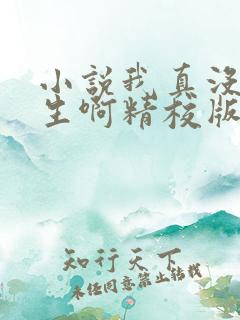 小说我真没
生啊精校版
知行天下
未经同意禁止转载